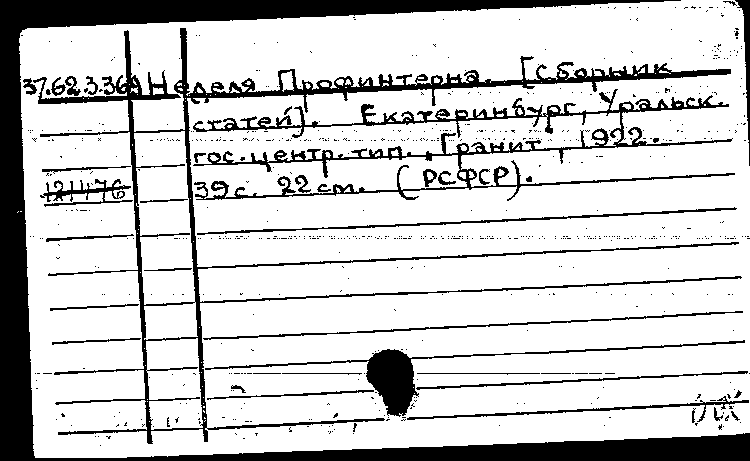 37.62.3.369 Неделя Профинтерна. [Сборник
статей]. Екатеринбург, Уральск.
гос. центр. тип. „Гранит", 1922.
121476 39 с. 22 см. (РСФСР).